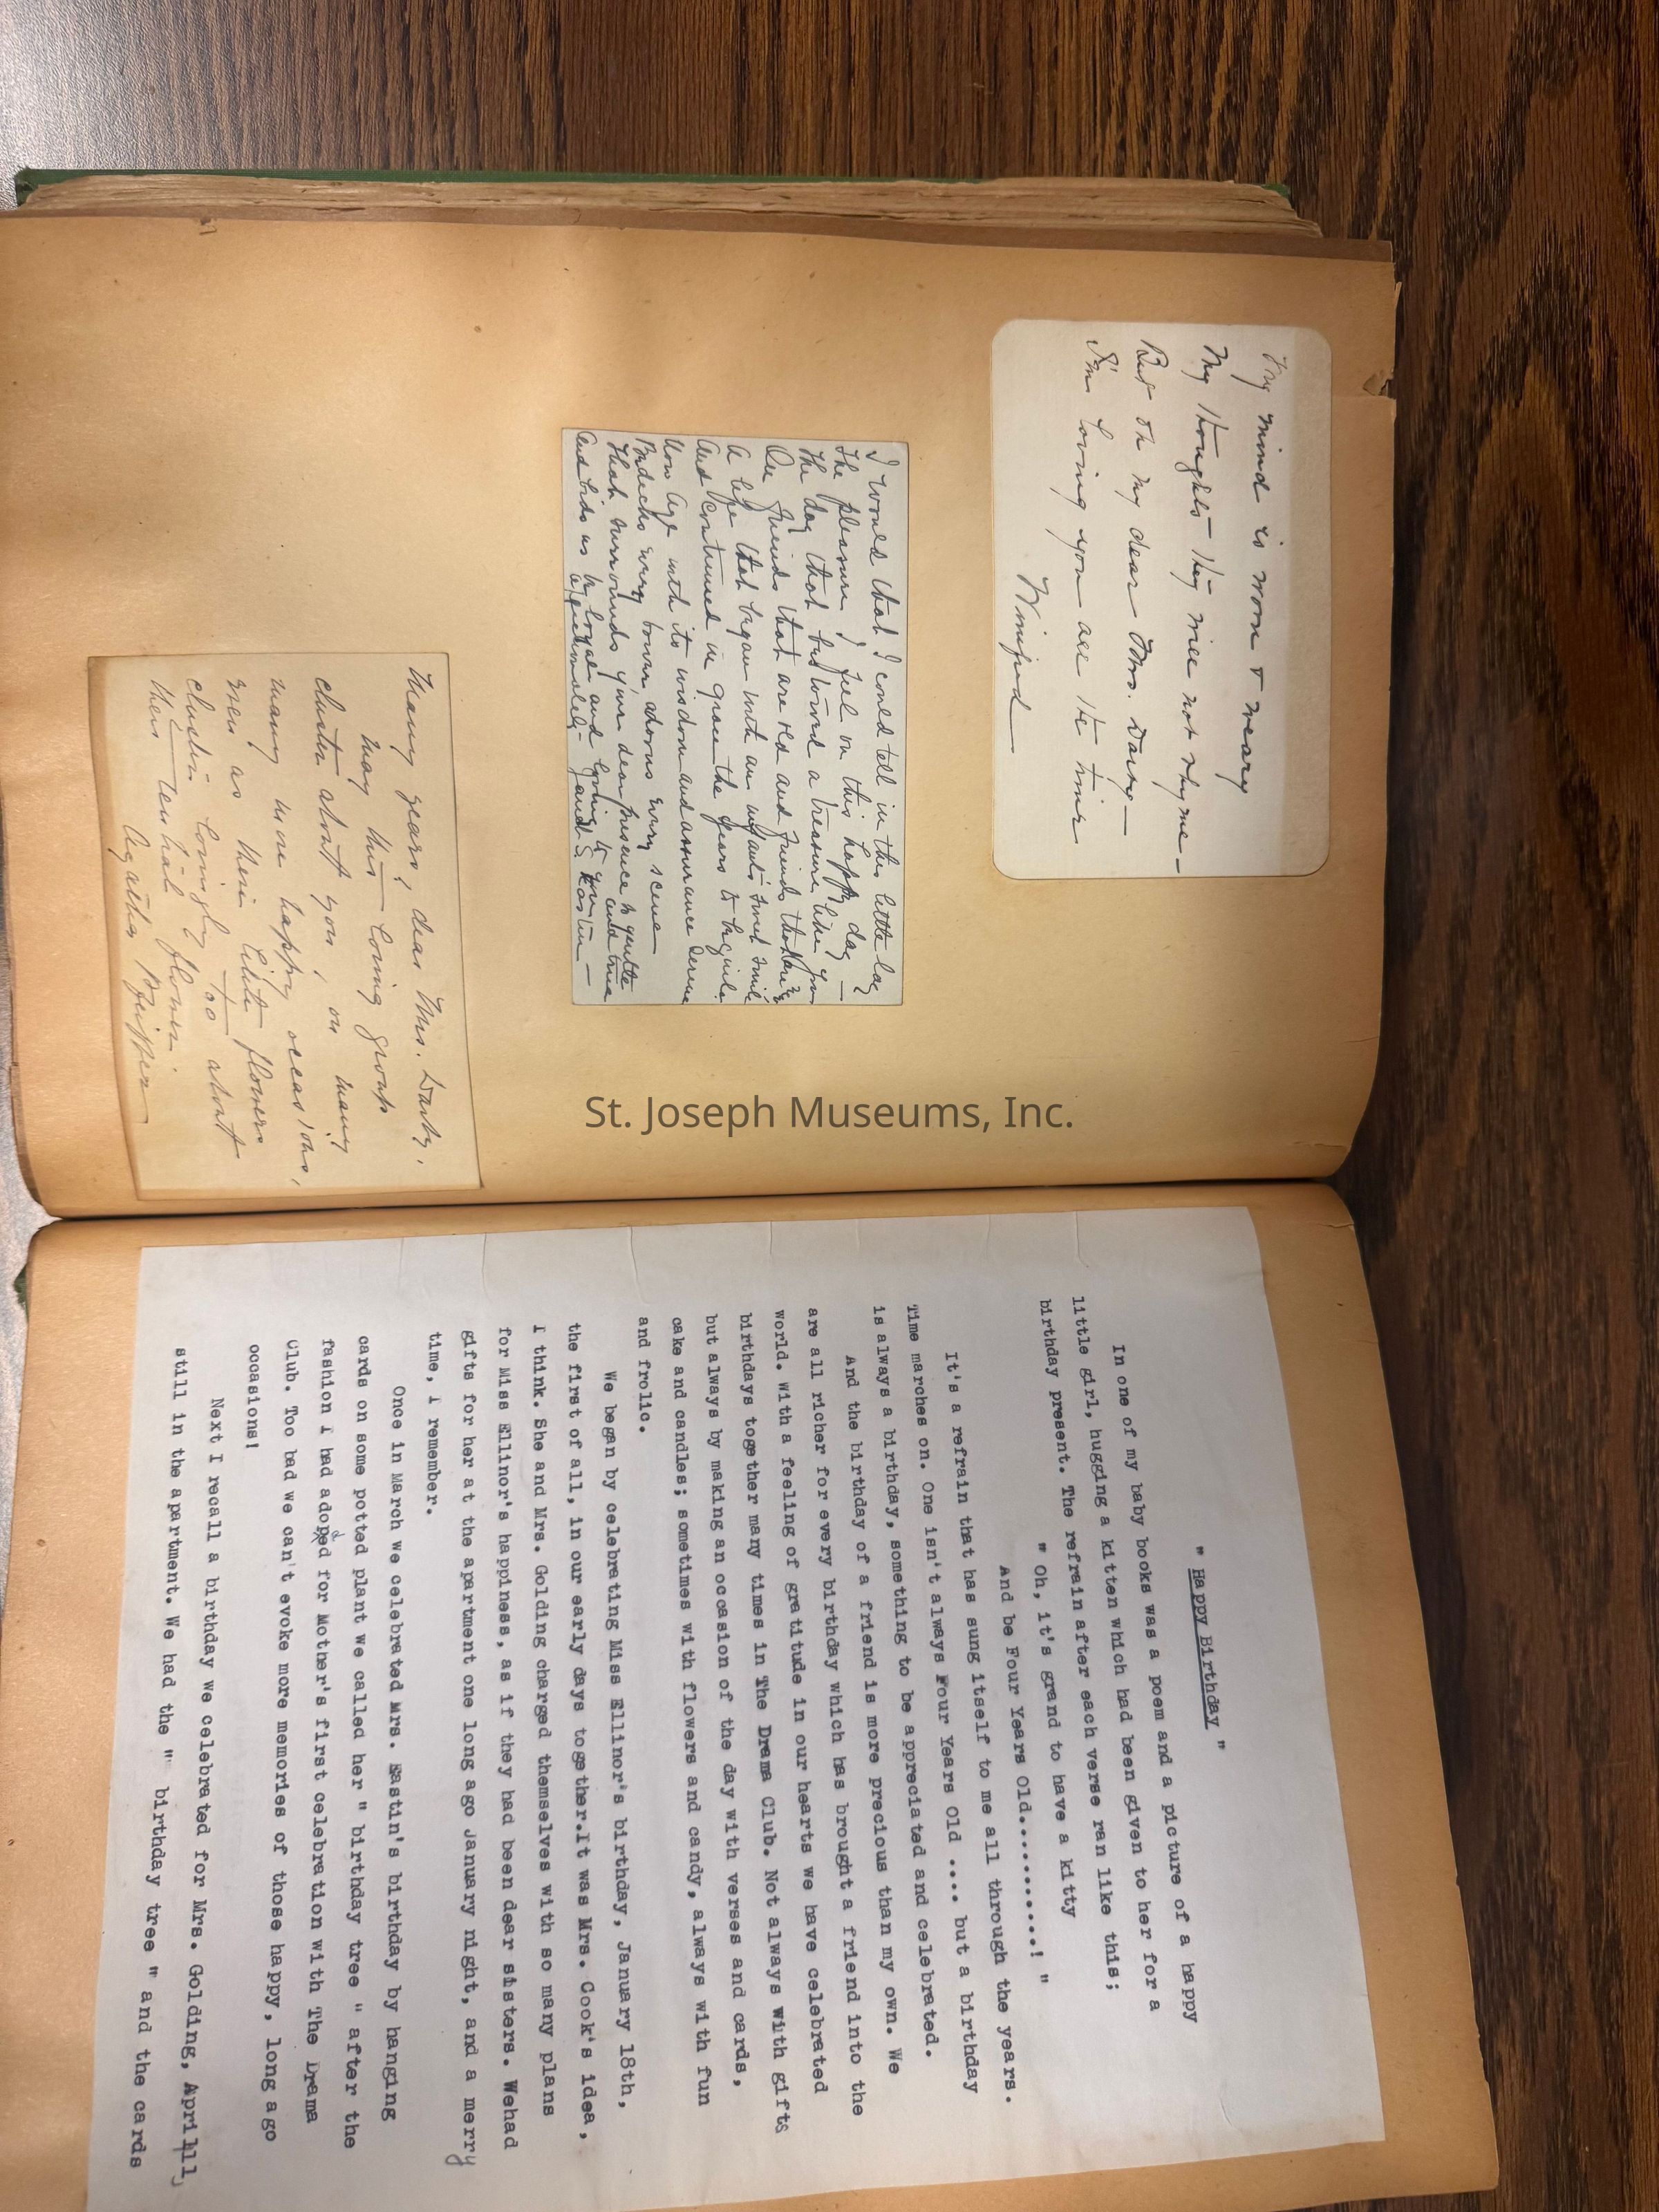 My mind is worn & weary
My thoughts they will not rhyme —
But oh my dear Mrs. Darby —
I'm loving you all the time
Winifred
I would that I could tell in this little lay
The pleasure I feel on this happy day —
The day that bestowed a treasure like you
On friends that are old and friends that are
A life that began with an infant's sweet smile
And continued in grace the years to beguile
Now Age with its wisdom and assurance serene
Bedecks every bower adorns every scene
That surrounds your dear presence so gentle and true
And bids us be loyal and loving to you
Affectionately — Janet S. Kastin —
Many years, dear Mrs. Darby,
may this loving group
cluster about you, on many
many more happy occasions,
even as these little flowers
cluster lovingly too about
their tender flower.
Agatha Pfeiffer
St. Joseph Museums, Inc.
" Happy Birthday "
In one of my baby books was a poem and a picture of a happy
little girl, hugging a kitten which had been given to her for a
birthday present. The refrain after each verse ran like this;
" Oh, it's grand to have a kitty
And be Four Years Old...........! "
It's a refrain that has sung itself to me all through the years.
Time marches on. One isn't always Four Years Old .... but a birthday
is always a birthday, something to be appreciated and celebrated.
And the birthday of a friend is more precious than my own. We
are all richer for every birthday which has brought a friend into the
world. With a feeling of gratitude in our hearts we have celebrated
birthdays together many times in The Drama Club. Not always with gifts
but always by making an occasion of the day with verses and cards,
cake and candles; sometimes with flowers and candy, always with fun
and frolic.
We began by celebrating Miss Ellinor's birthday, January 18th,
the first of all, in our early days together.It was Mrs. Cook's idea,
I think. She and Mrs. Golding charged themselves with so many plans
for Miss Ellinor's happiness, as if they had been dear sisters. Wehad
gifts for her at the apartment one long ago January night, and a merry
time, I remember.
Once in March we celebrated Mrs. Eastin's birthday by hanging
cards on some potted plant we called her " birthday tree " after the
fashion I had adoped for Mother's first celebration with The Drama
Club. Too bad we can't evoke more memories of those happy, long ago
occasions!
Next I recall a birthday we celebrated for Mrs. Golding, April 11,
still in the apartment. We had the " birthday tree " and the cards